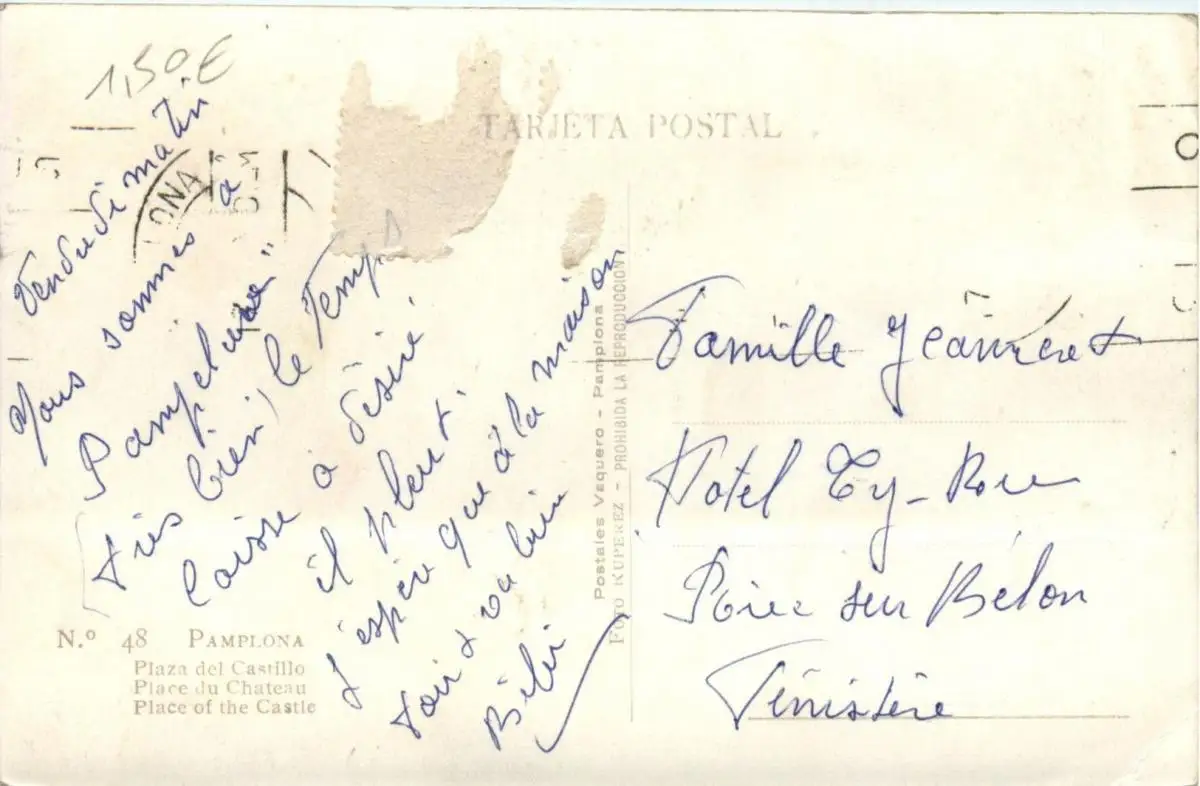 1,50 €
TARJETA POSTAL
ONA
Vendredi matin
Nous sommes à
Pampelune
très bien, le Temps
laisse à désirer
il pleut.
J'espère que à la maison
tout va bien
Bébé
Postales Vaquero - Pamplona
FOTO KUPEREZ - PROHIBIDA LA REPRODUCCION
Famille
Hotel Ty-
sur Bélon
Finistère
N.º 48 PAMPLONA
Plaza del Castillo
Place du Chateau
Place of the Castle